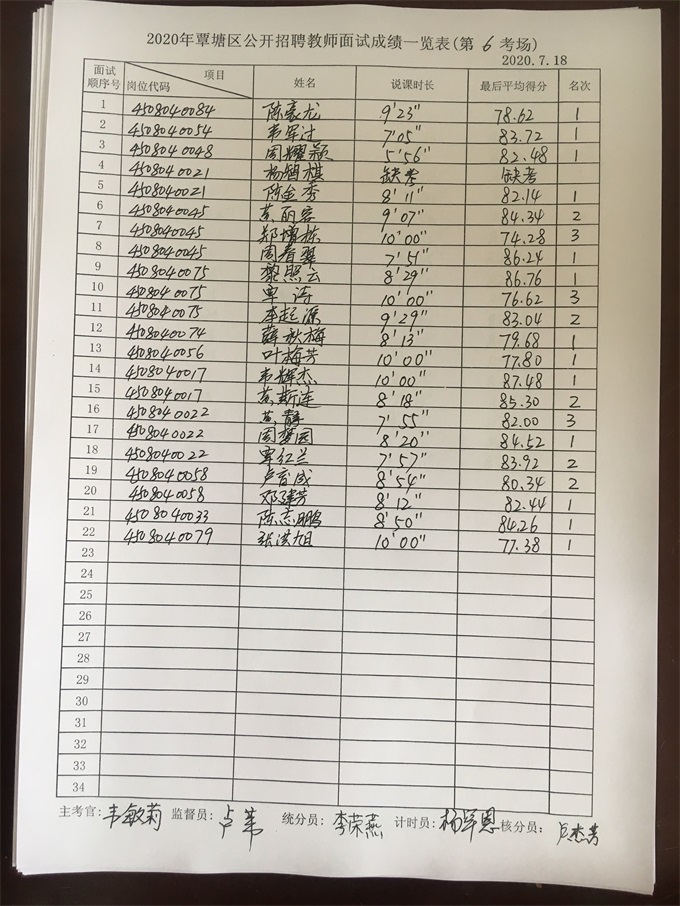 2020年覃塘区公开招聘教师面试成绩一览表(第 6 考场)
2020.7.18
面试顺序号 项目 岗位代码 姓名 说课时长 最后平均得分 名次
1 4508040084 陈豪龙 9'23" 78.62 1
2 4508040054 韦军过 7'05" 83.72 1
3 4508040048 周耀颖 5'56" 82.48 1
4 4508040021 杨贺棋 缺考 缺考
5 4508040021 陈金秀 8'11" 82.14 1
6 4508040045 黄丽容 9'07" 84.34 2
7 4508040045 郑增栋 10'00" 74.28 3
8 4508040045 周春翠 7'51" 86.24 1
9 4508040075 黎照云 8'29" 86.76 1
10 4508040075 覃涛 10'00" 76.62 3
11 4508040075 李起源 9'29" 83.04 2
12 4508040074 薛秋梅 8'13" 79.68 1
13 4508040056 叶梅芳 10'00" 77.80 1
14 4508040017 韦辉杰 10'00" 87.48 1
15 4508040017 黄斯连 8'18" 85.30 2
16 4508040022 黄静 7'55" 82.00 3
17 4508040022 周梦园 8'20" 84.52 1
18 4508040022 覃红兰 7'57" 83.92 2
19 4508040058 卢育成 8'54" 80.34 2
20 4508040058 邓建芳 8'12" 82.44 1
21 4508040033 陈志鹏 8'50" 84.26 1
22 4508040079 张洪旭 10'00" 77.38 1
23
24
25
26
27
28
29
30
31
32
33
34
主考官: 韦敏莉 监督员: 卢 统分员: 李荣燕 计时员: 杨军恩 核分员: 卢杰芳